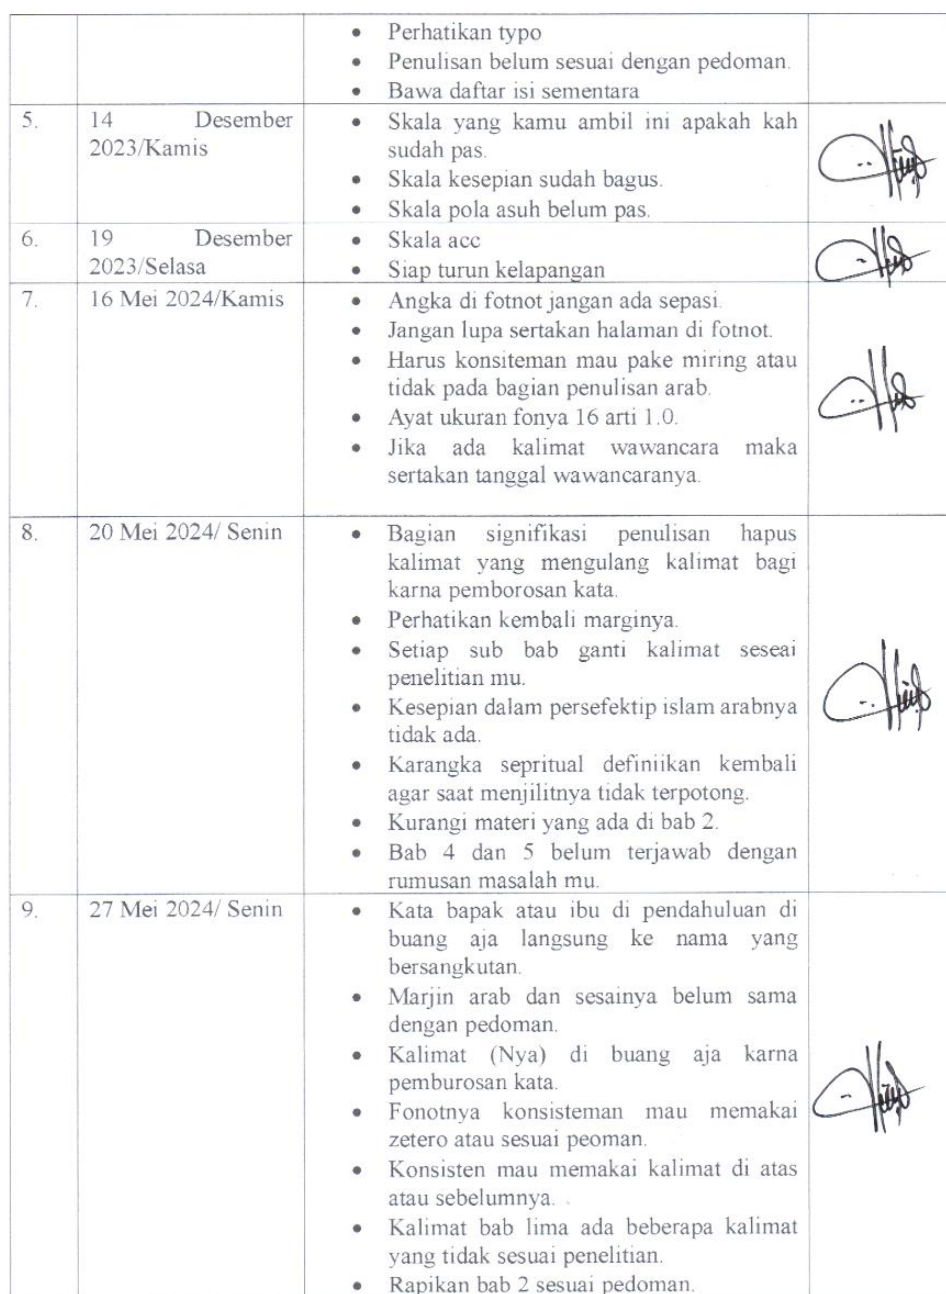 • Perhatikan typo
• Penulisan belum sesuai dengan pedoman.
• Bawa daftar isi sementara
5. 14 Desember 2023/Kamis
• Skala yang kamu ambil ini apakah kah
sudah pas.
• Skala kesepian sudah bagus.
• Skala pola asuh belum pas.
6. 19 Desember 2023/Selasa
• Skala acc
• Siap turun kelapangan
7. 16 Mei 2024/Kamis
• Angka di fotnot jangan ada sepasi.
• Jangan lupa sertakan halaman di fotnot.
• Harus konsiteman mau pake miring atau
tidak pada bagian penulisan arab.
• Ayat ukuran fonya 16 arti 1.0.
• Jika ada kalimat wawancara maka
sertakan tanggal wawancaranya.
8. 20 Mei 2024/ Senin
• Bagian signifikasi penulisan hapus
kalimat yang mengulang kalimat bagi
karna pemborosan kata.
• Perhatikan kembali marginya.
• Setiap sub bab ganti kalimat seseai
penelitian mu.
• Kesepian dalam persefektip islam arabnya
tidak ada.
• Karangka sepritual definiikan kembali
agar saat menjilitnya tidak terpotong.
• Kurangi materi yang ada di bab 2.
• Bab 4 dan 5 belum terjawab dengan
rumusan masalah mu.
9. 27 Mei 2024/ Senin
• Kata bapak atau ibu di pendahuluan di
buang aja langsung ke nama yang
bersangkutan.
• Marjin arab dan sesainya belum sama
dengan pedoman.
• Kalimat (Nya) di buang aja karna
pemburosan kata.
• Fonotnya konsisteman mau memakai
zetero atau sesuai peoman.
• Konsisten mau memakai kalimat di atas
atau sebelumnya.
• Kalimat bab lima ada beberapa kalimat
yang tidak sesuai penelitian.
• Rapikan bab 2 sesuai pedoman.